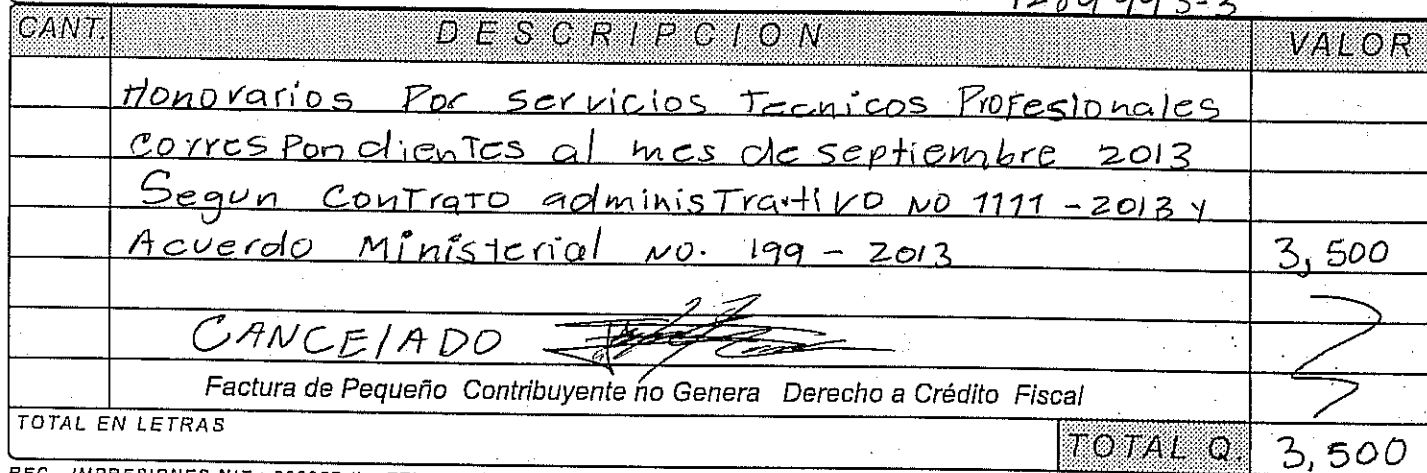 CANT. DESCRIPCION VALOR
Honorarios Por servicios Tecnicos Profesionales
corresPondienTes al mes de septiembre 2013
Segun ConTraTo adminisTrativo No 1111-2013 y
Acuerdo Ministerial No. 199-2013 3,500
CANCElADO
Factura de Pequeño Contribuyente no Genera Derecho a Crédito Fiscal
TOTAL EN LETRAS
TOTAL Q. 3,500